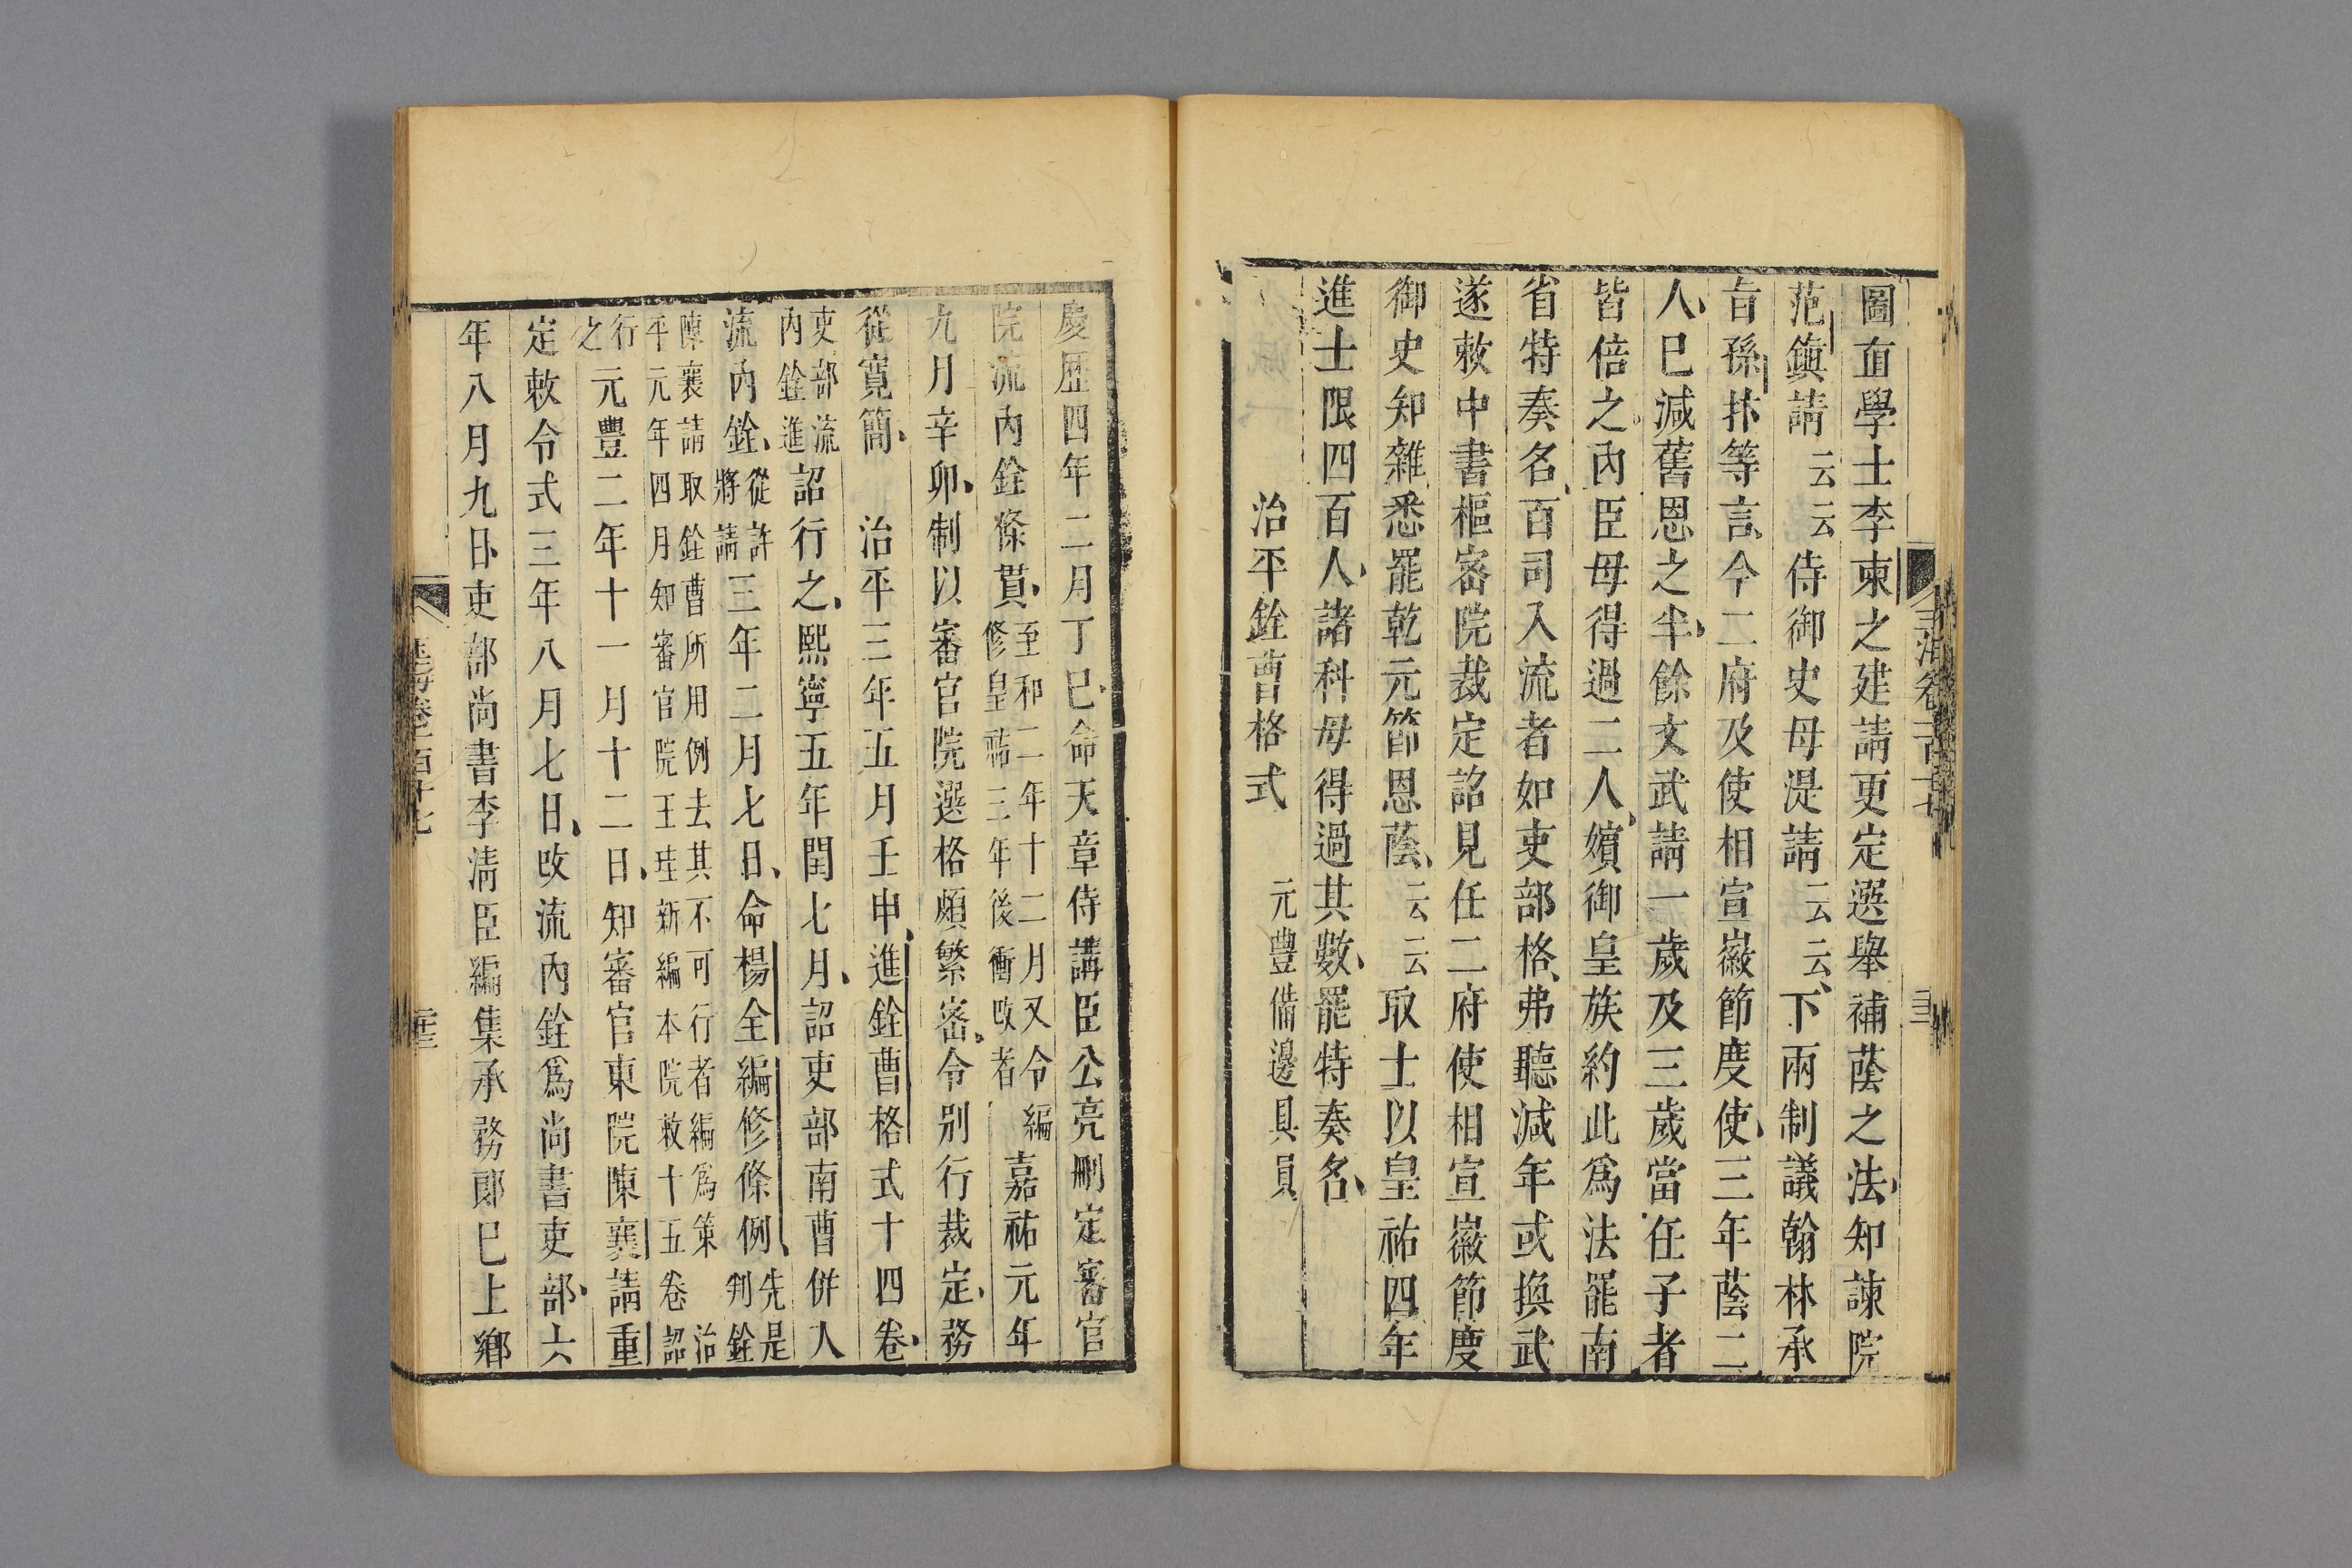 圖直學士李柬之建請更定選舉補蔭之法知諫院
范鎮請云云侍御史母湜請云云下兩制議翰林承
旨孫抃等言今二府及使相宣徽節度使三年蔭二
人巳減舊恩之半餘文武請一歲及三歲當任子者
皆倍之內臣母得過二人嬪御皇族約此爲法罷南
省特奏名百司入流者如吏部格弗聽減年或換武
遂敕中書樞密院裁定詔見任二府使相宣徽節度
御史知雜悉罷乾元節恩蔭云云取士以皇祐四年
進士限四百人諸科母得過其數罷特奏名
治平銓曹格式 元豐備邊具員
慶歷四年二月丁巳命天章侍講臣公亮刪定審官
院流內銓條貫至和二年十二月又令編
修皇祐三年後衝改者嘉祐元年
九月辛卯制以審官院選格頗繁密令別行裁定務
從寬簡 治平三年五月壬申進銓曹格式十四卷
吏部流
內銓進詔行之熙寧五年閏七月詔吏部南曹併入
流內銓從許
將請三年二月七日命楊全編修條例先是
判銓
陳襄請取銓曹所用例去其不可行者編爲策 治
平元年四月知審官院王珪新編本院敕十五卷 詔
行
之元豐二年十一月十二日知審官東院陳襄請重
定敕令式三年八月七日改流內銓爲尚書吏部六
年八月九日吏部尚書李清臣編集承務郎巳上鄉
玉海卷一百十七